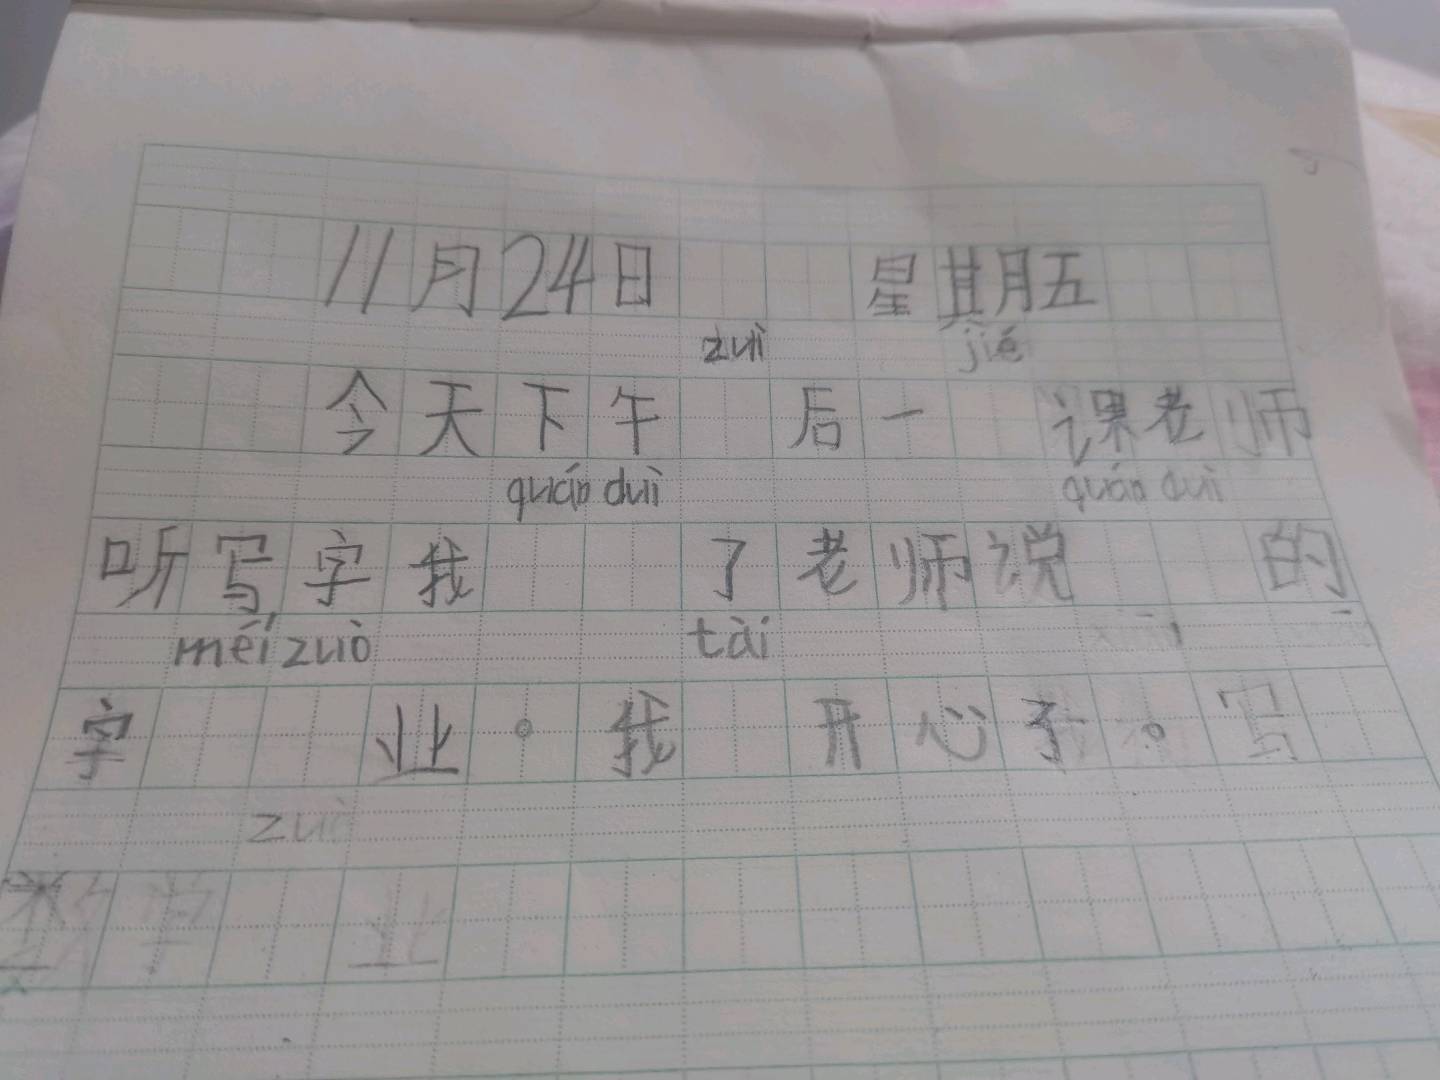 11月24日 星期五
zuì jié
今天下午 后一 课老师
quán duì quán duì
听写字我 了老师说 的
méi zuò tài
字 业。我 开心了。写
zuò
数学 业